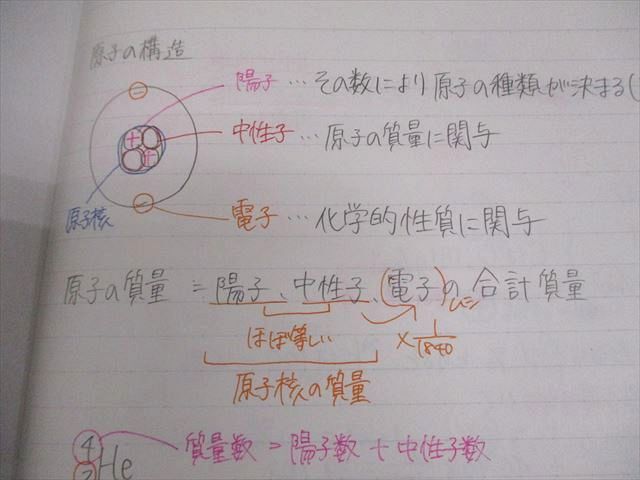 原子の構造
陽子…その数により原子の種類が決まる(
中性子…原子の質量に関与
原子核
電子…化学的性質に関与
原子の質量≒陽子、中性子、(電子)の合計質量
ムシ
ほぼ等しい
×1/1840
原子核の質量
4 質量数=陽子数+中性子数
2He